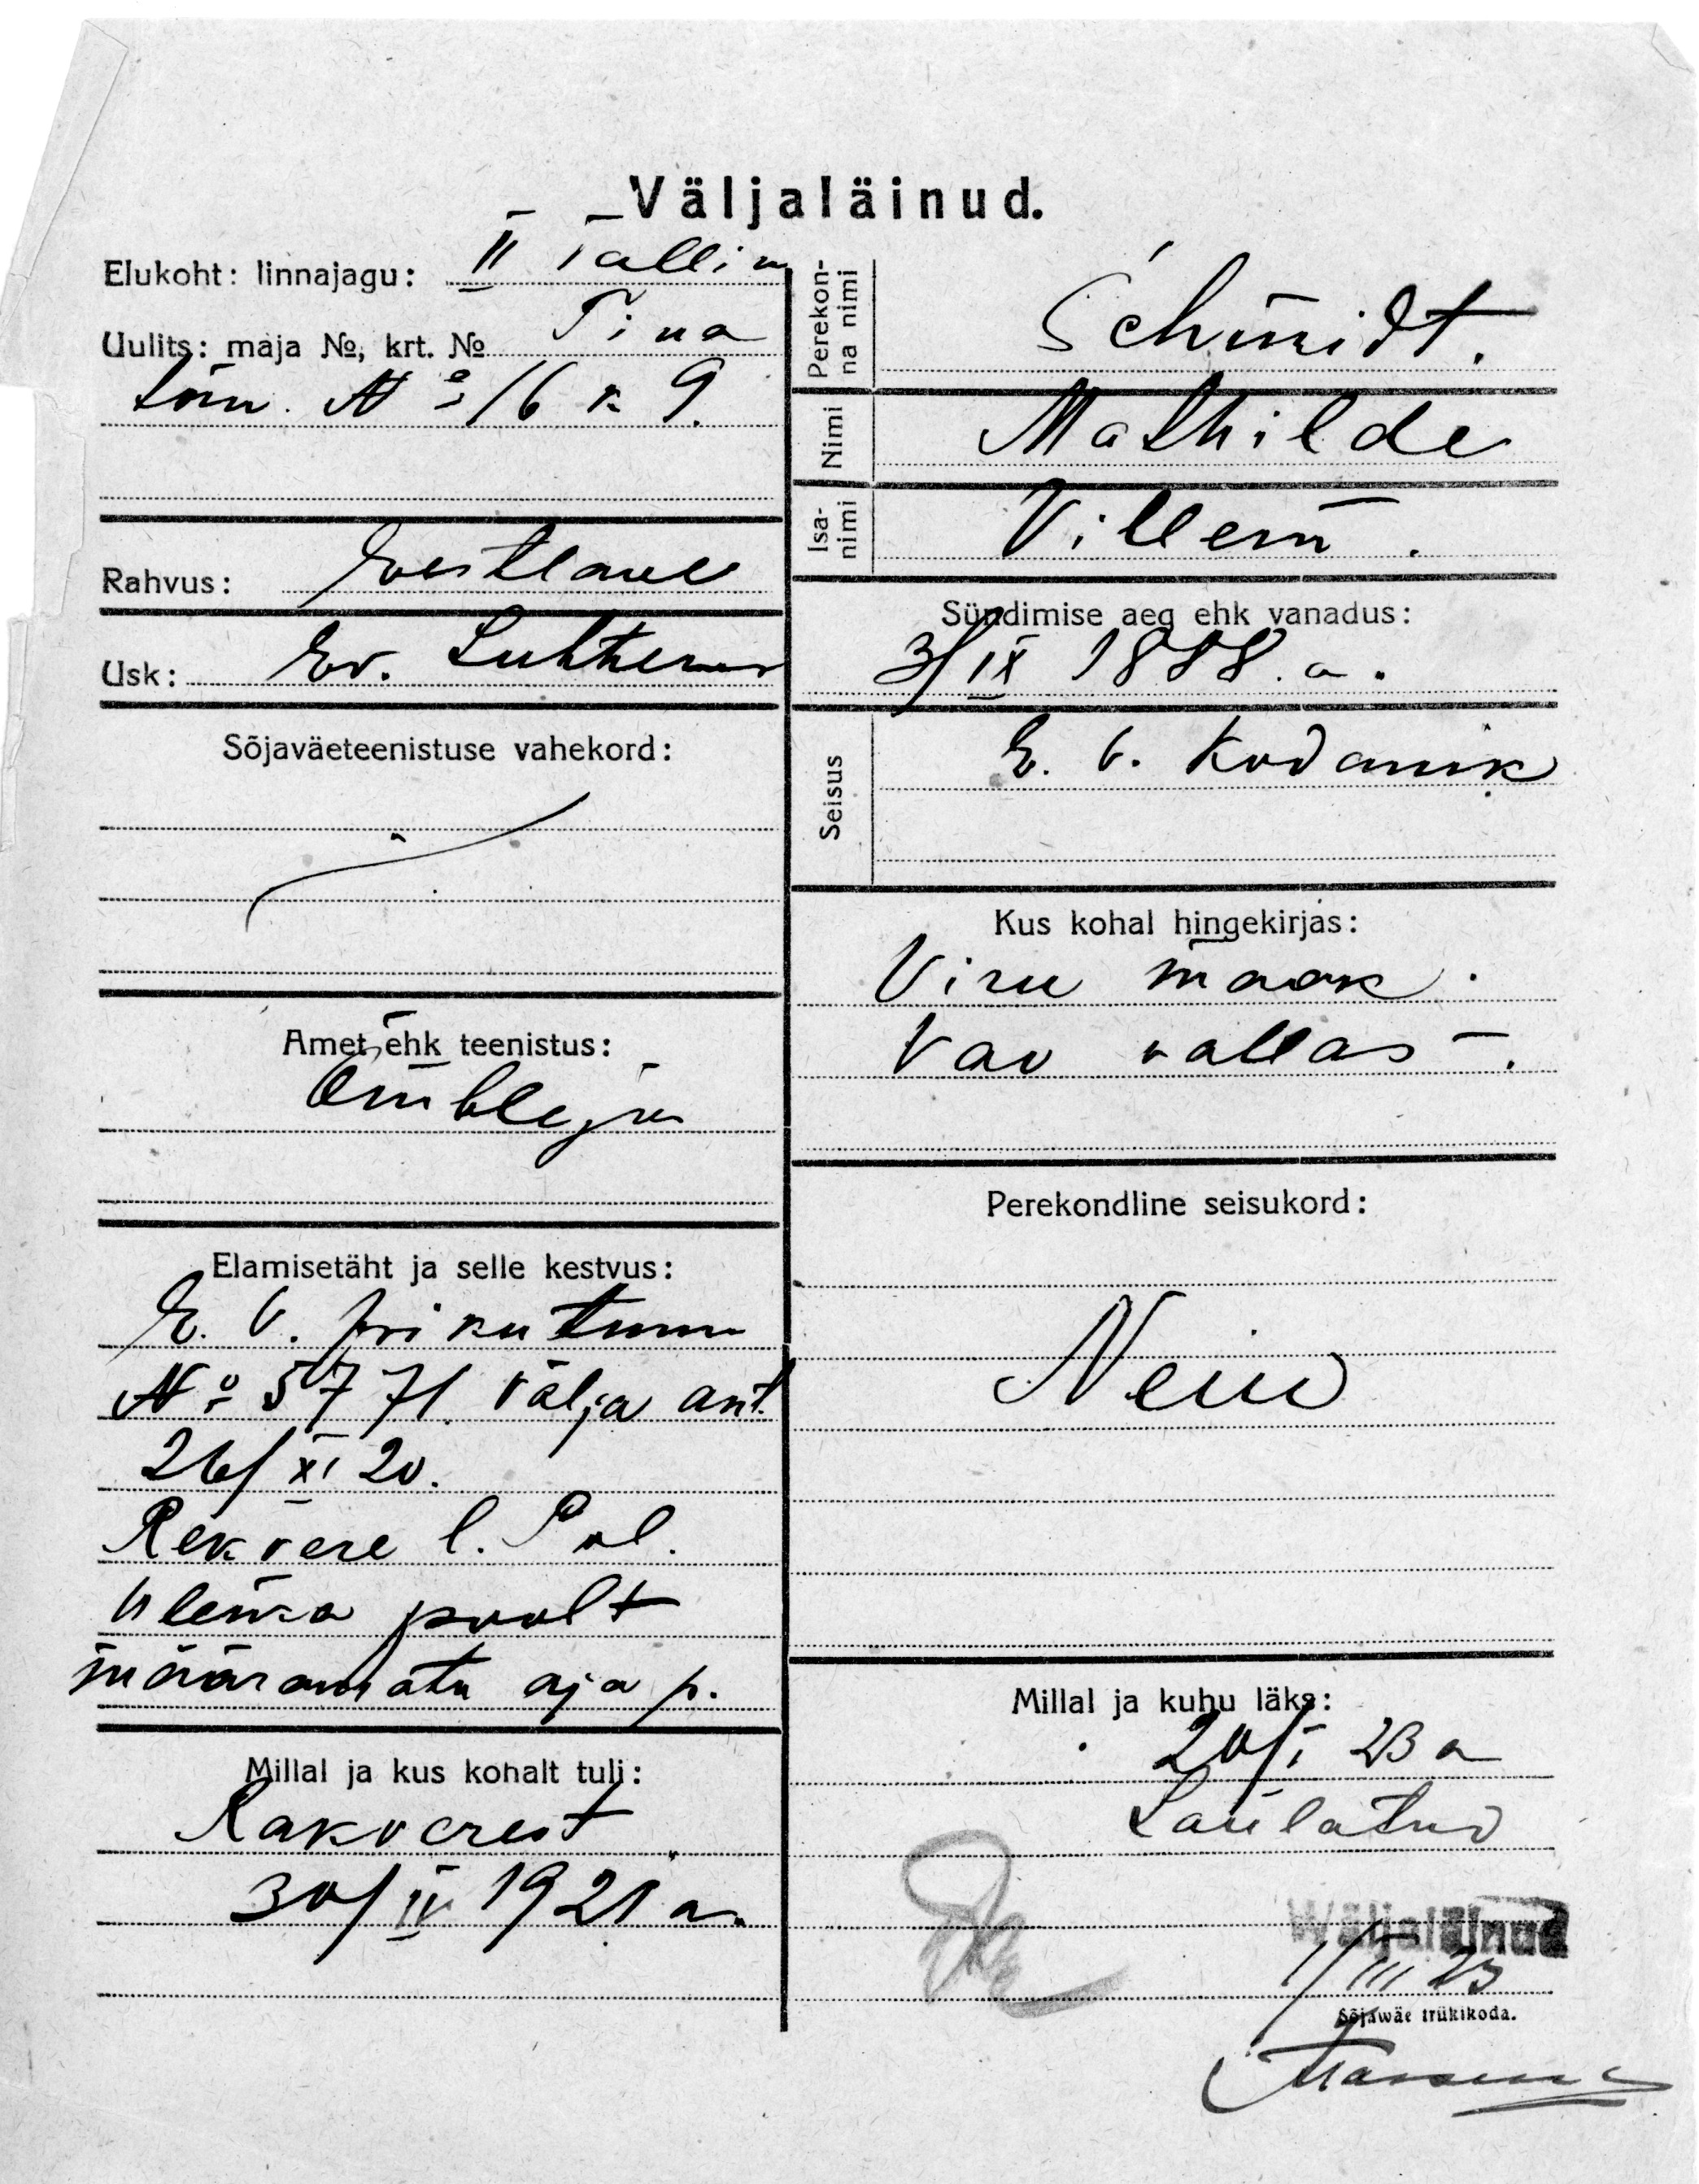 Väljaläinud.
Elukoht: linnajagu: II Tallinn
Uulits: maja №, krt. № Tina
tän. № 16 k 9.
Rahvus: Eestlane
Usk: Ev. Luhtheruse
Sõjaväeteenistuse vahekord:
Amet ehk teenistus:
Õmbleja
Elamisetäht ja selle kestvus:
E. V. isikutunn
№ 5771. välja ant.
26/XI 20.
Rakvere l. Pol.
ülema poolt
määramata aja p.
Millal ja kus kohalt tuli:
Rakverest
30/IV 1921 a.
Perekonna nimi
Schmidt.
Nimi
Mathilde
Isanimi
Villem.
Sündimise aeg ehk vanadus:
3/IX 1888. a.
Seisus
E. V. Kodanik
Kus kohal hingekirjas:
Viru maak.
Vao vallas.
Perekondline seisukord:
Neiu
Millal ja kuhu läks:
20/I 23 a
Laulatud
Wäljaläinud
1/III 23
Sõjawäe trükikoda.